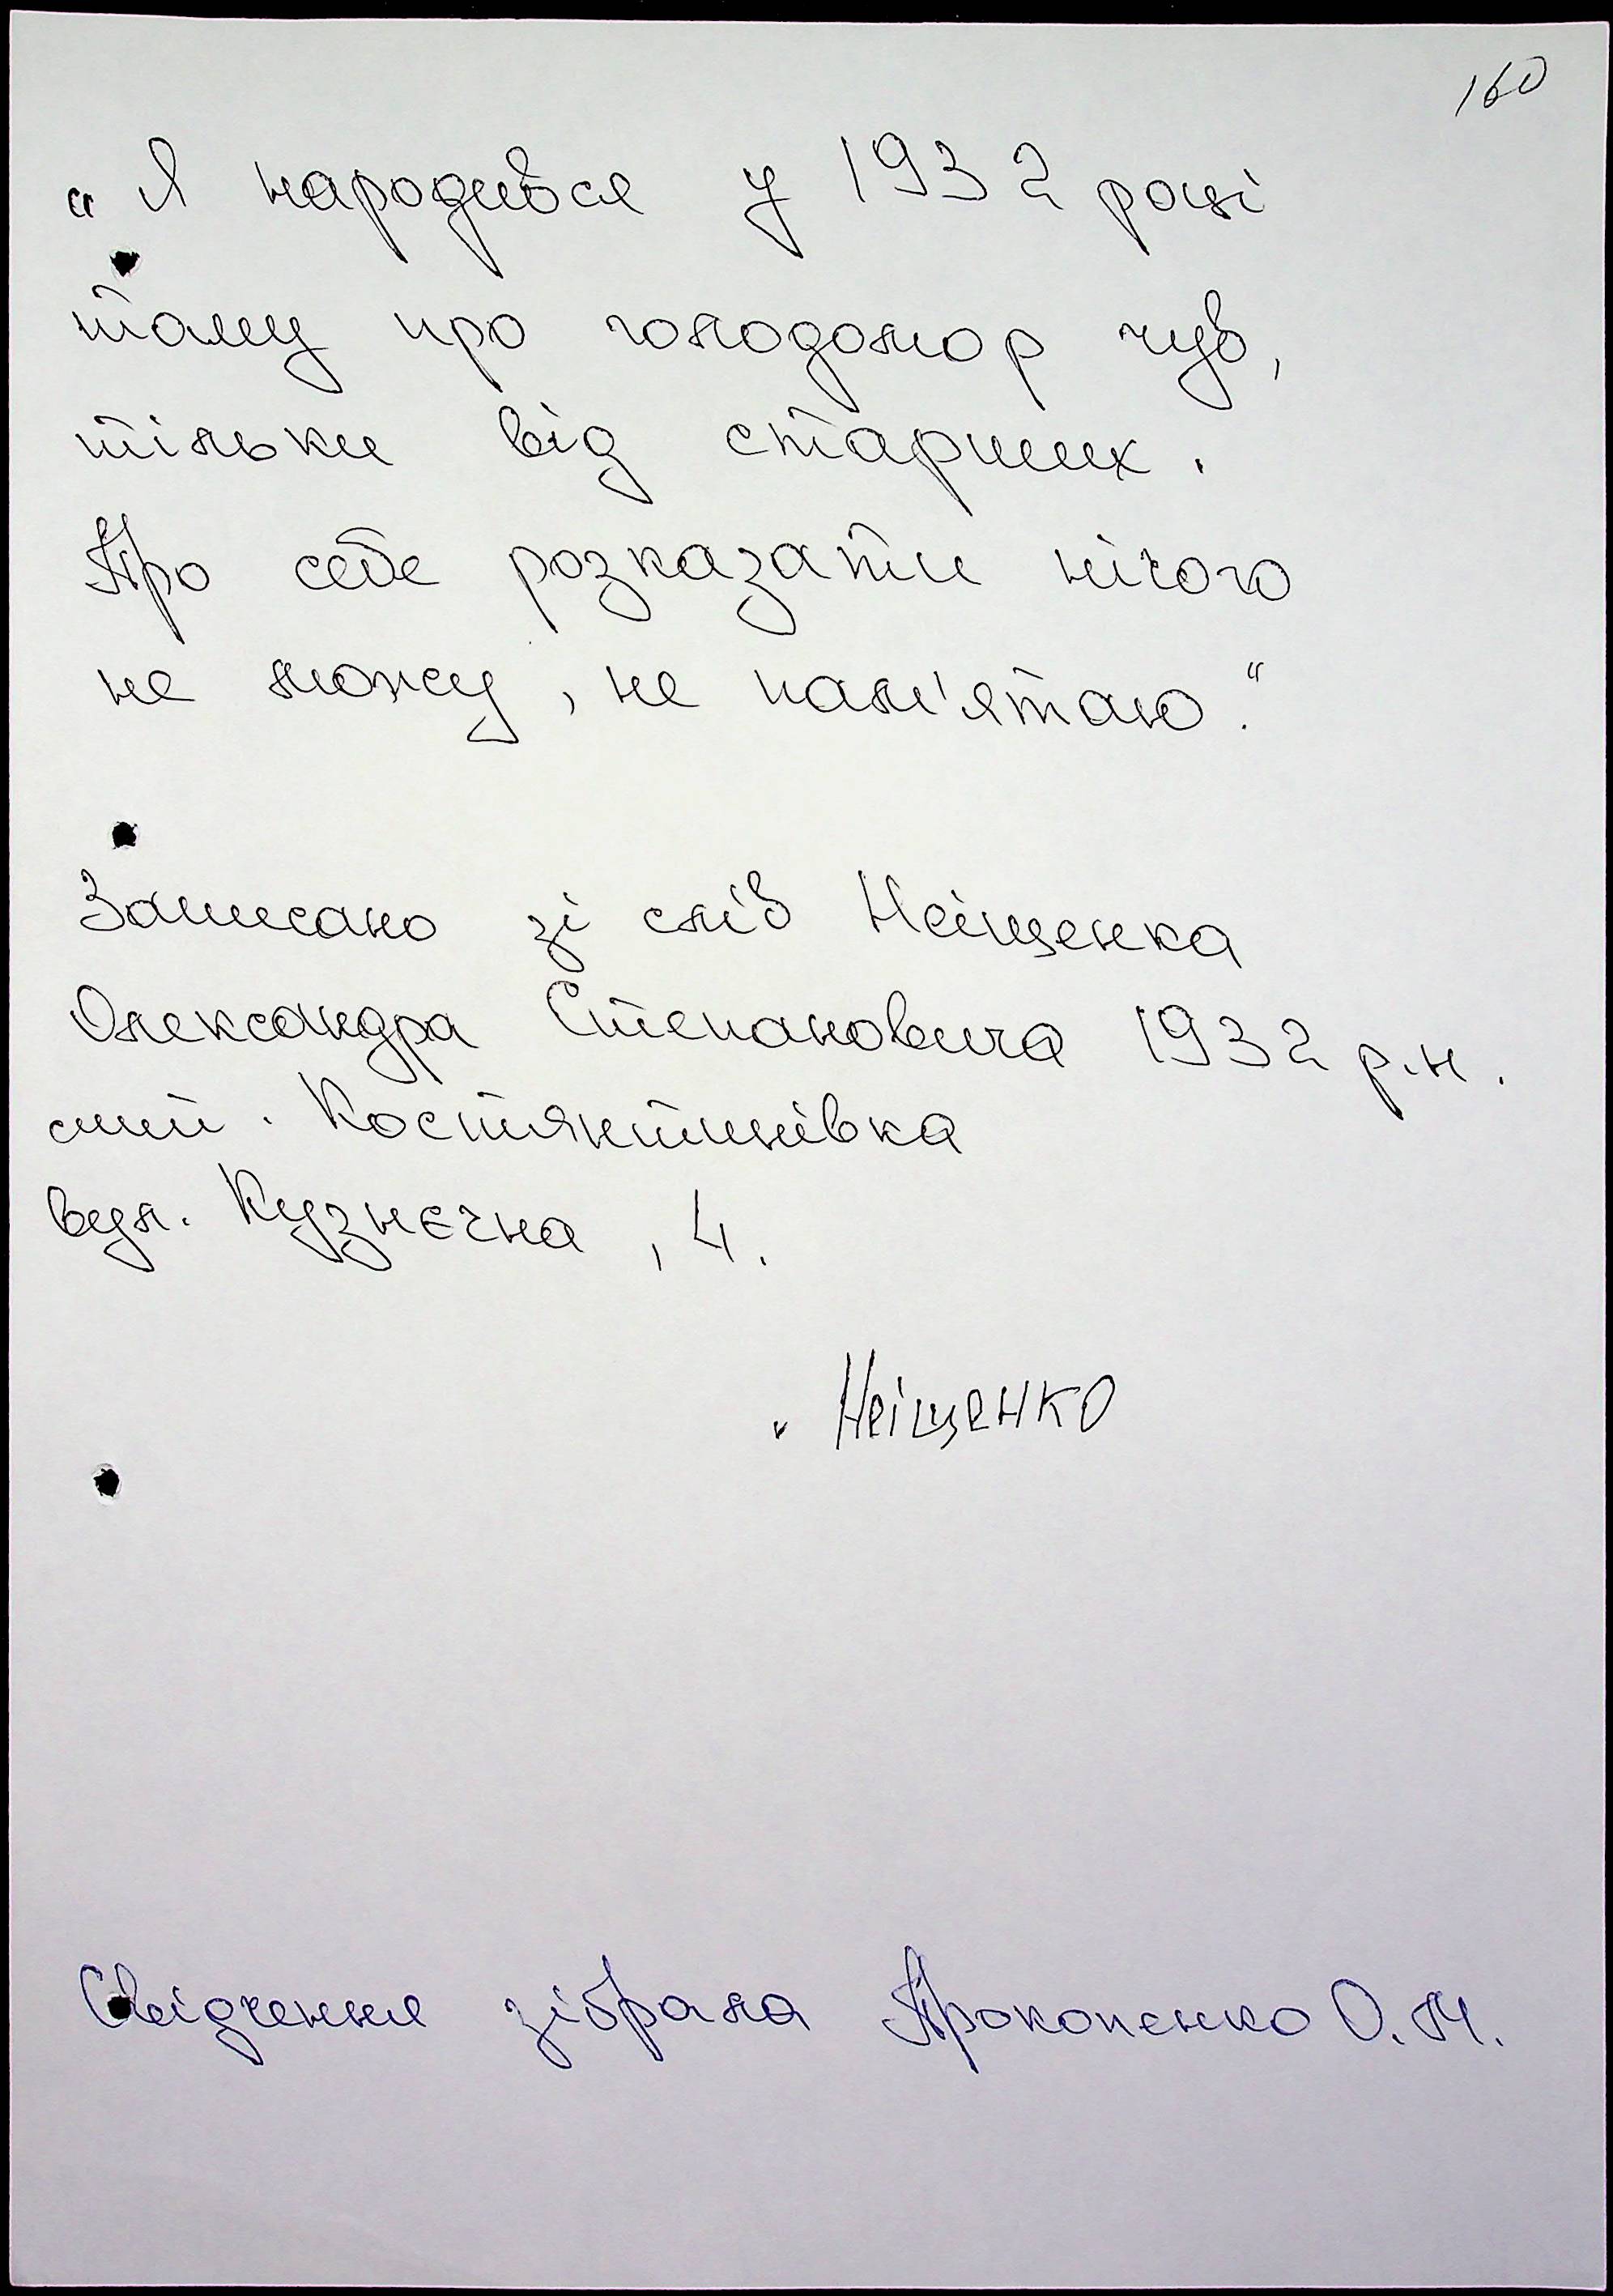 160
„Я народився у 1932 році
тому про голодомор чув,
тільки від старших.
Про себе розказати нічого
не можу, не пам'ятаю."
Записано зі слів Неіщенка
Олександра Степановича 1932 р.н.
смт. Костянтинівка
вул. Кузнєчна, 4.
Неіщенко
Свідчення зібрала Прокопенко О.М.